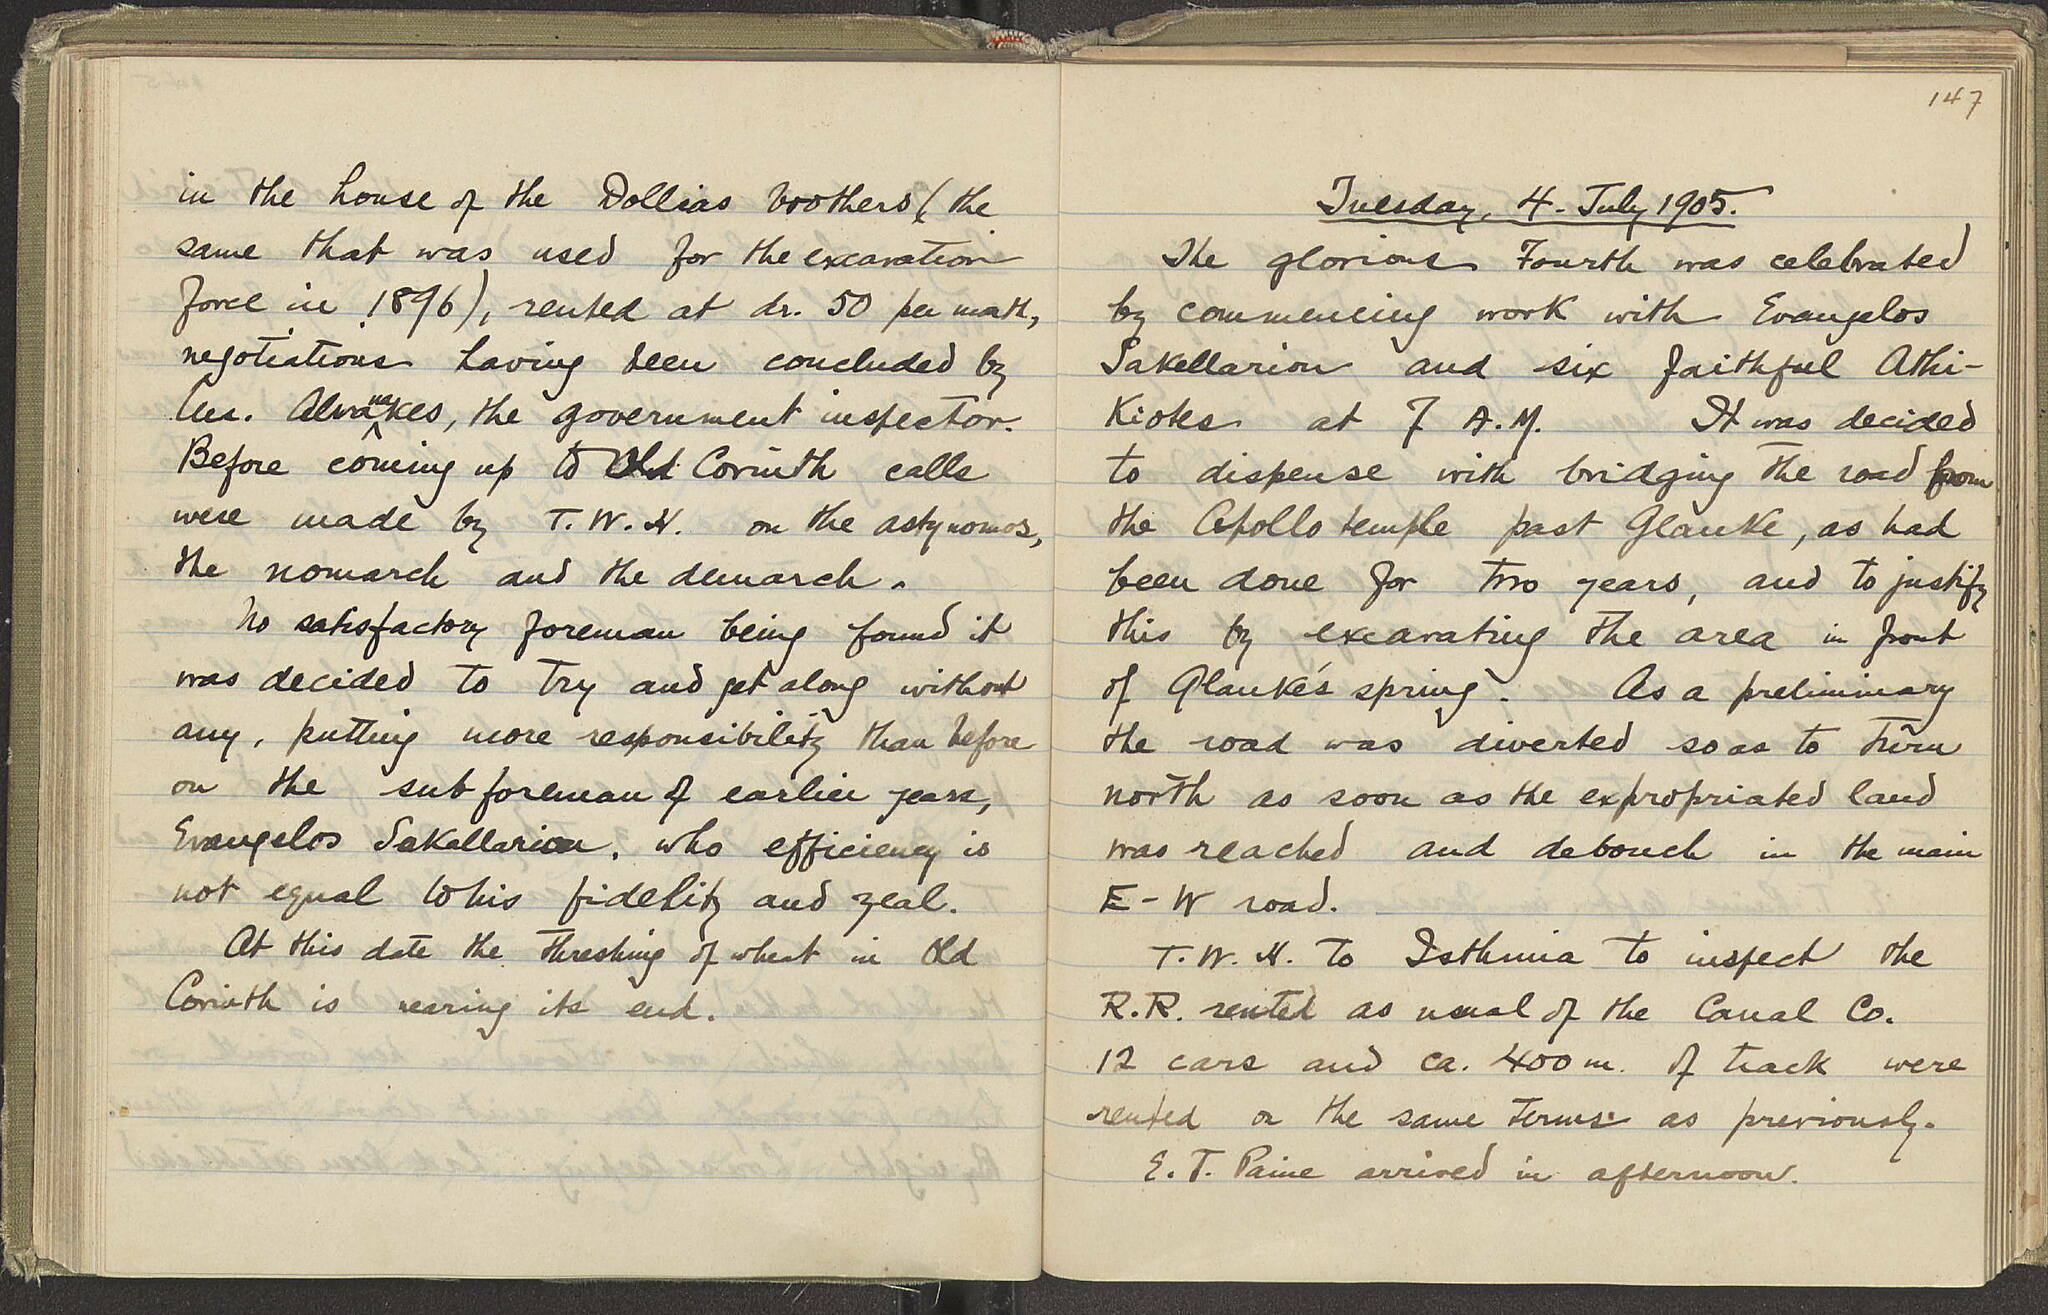 in the house of the Dollias brothers (the
same that was used for the excavation
force in 1896), rented at dr. 50 per month,
negotiations having been concluded by
Alvanakes, the government inspector.
Before coming up to Old Corinth calls
were made by T. W. H. on the astynomos,
the nomarch and the demarch.
No satisfactory foreman being found it
was decided to try and get along without
any, putting more responsibility than before
on the subforeman of earlier years,
Evangelos Sakellariou, who efficiency is
not equal to his fidelity and zeal.
At this date the threshing of wheat in Old
Corinth is nearing its end.
147
Tuesday, 4. July 1905.
The glorious Fourth was celebrated
by commencing work with Evangelos
Sakellariou and six faithful Athi-
kiotes at 7 A.M. It was decided
to dispense with bridging the road from
the Apollo temple past Glauke, as had
been done for two years, and to justify
this by excavating the area in front
of Glauke's spring. As a preliminary
the road was diverted so as to turn
north as soon as the expropriated land
was reached and debouch in the main
E-W road.
T. W. H. to Isthmia to inspect the
R.R. rented as usual of the Canal Co.
12 cars and ca. 400 m. of track were
rented on the same terms as previously.
E. T. Paine arrived in afternoon.